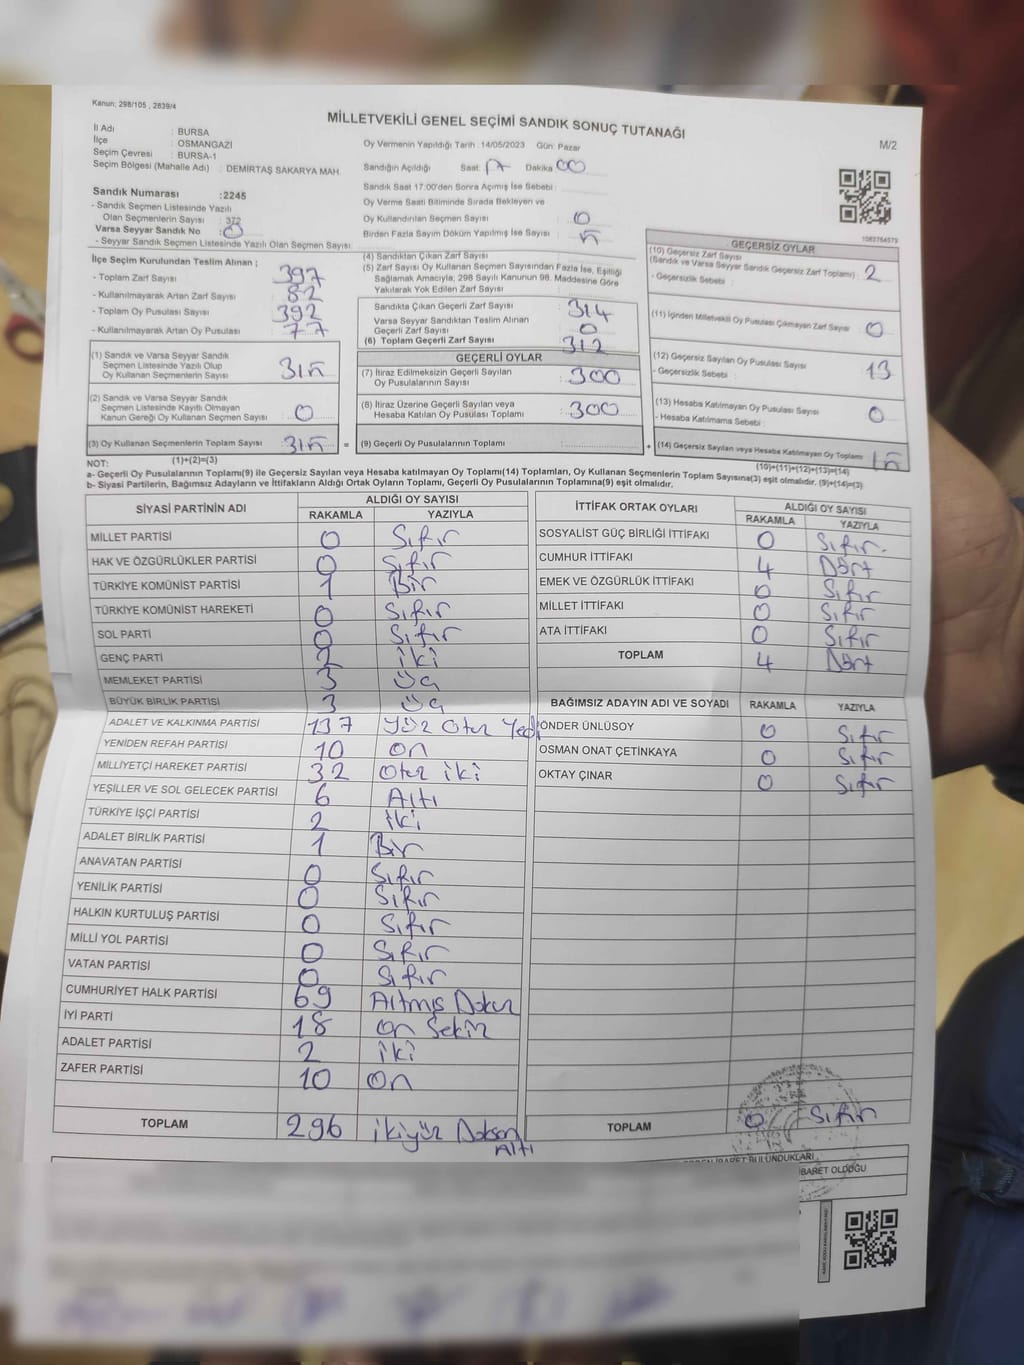 Kanun; 298/105 , 2839/4
MİLLETVEKİLİ GENEL SEÇİMİ SANDIK SONUÇ TUTANAĞI
M/2
İl Adı : BURSA
İlçe : OSMANGAZİ
Seçim Çevresi : BURSA-1
Seçim Bölgesi (Mahalle Adı) : DEMİRTAŞ SAKARYA MAH.
Oy Vermenin Yapıldığı Tarih : 14/05/2023 Gün: Pazar
Sandığın Açıldığı Saat 17 Dakika 00
Sandık Saat 17.00'den Sonra Açımış İse Sebebi :
Oy Verme Saati Bitiminde Sırada Bekleyen ve
Oy Kullandırılan Seçmen Sayısı : 0
Birden Fazla Sayım Döküm Yapılmış İse Sayısı :
Sandık Numarası :2245
- Sandık Seçmen Listesinde Yazılı
Olan Seçmenlerin Sayısı : 372
Varsa Seyyar Sandık No : 0
- Seyyar Sandık Seçmen Listesinde Yazılı Olan Seçmen Sayısı:
İlçe Seçim Kurulundan Teslim Alınan ;
- Toplam Zarf Sayısı : 397
- Kullanılmayarak Artan Zarf Sayısı : 82
- Toplam Oy Pusulası Sayısı : 392
- Kullanılmayarak Artan Oy Pusulası : 77
(1) Sandık ve Varsa Seyyar Sandık
Seçmen Listesinde Yazılı Olup
Oy Kullanan Seçmenlerin Sayısı
(2) Sandık ve Varsa Seyyar Sandık
Seçmen Listesinde Kayıtlı Olmayan
Kanun Gereği Oy Kullanan Seçmen Sayısı : 0
(3) Oy Kullanan Seçmenlerin Toplam Sayısı
(1)+(2)=(3)
(4) Sandıktan Çıkan Zarf Sayısı
(5) Zarf Sayısı Oy Kullanan Seçmen Sayısından Fazla İse, Eşitliği
Sağlamak Amacıyla; 298 Sayılı Kanunun 98. Maddesine Göre
Yakılarak Yok Edilen Zarf Sayısı :
Sandıkta Çıkan Geçerli Zarf Sayısı : 314
Varsa Seyyar Sandıktan Teslim Alınan
Geçerli Zarf Sayısı : 0
(6) Toplam Geçerli Zarf Sayısı : 312
GEÇERLİ OYLAR
(7) İtiraz Edilmeksizin Geçerli Sayılan
Oy Pusulalarının Sayısı : 300
(8) İtiraz Üzerine Geçerli Sayılan veya
Hesaba Katılan Oy Pusulası Toplamı : 300
= (9) Geçerli Oy Pusulalarının Toplamı : +
GEÇERSİZ OYLAR
(10) Geçersiz Zarf Sayısı
(Sandık ve Varsa Seyyar Sandık Geçersiz Zarf Toplamı) : 2
- Geçersizlik Sebebi :
(11) İçinden Milletvekili Oy Pusulası Çıkmayan Zarf Sayısı : 0
(12) Geçersiz Sayılan Oy Pusulası Sayısı : 13
- Geçersizlik Sebebi :
(13) Hesaba Katılmayan Oy Pusulası Sayısı : 0
- Hesaba Katılmama Sebebi :
(14) Geçersiz Sayılan veya Hesaba Katılmayan Oy Toplamı
(10)+(11)+(12)+(13)=(14)
NOT:
a- Geçerli Oy Pusulalarının Toplamı(9) ile Geçersiz Sayılan veya Hesaba katılmayan Oy Toplamı(14) Toplamları, Oy Kullanan Seçmenlerin Toplam Sayısına(3) eşit olmalıdır. (9)+(14)=(3)
b- Siyasi Partilerin, Bağımsız Adayların ve İttifakların Aldığı Ortak Oyların Toplamı, Geçerli Oy Pusulalarının Toplamına(9) eşit olmalıdır.
SİYASİ PARTİNİN ADI ALDIĞI OY SAYISI
RAKAMLA YAZIYLA
MİLLET PARTİSİ 0 Sıfır
HAK VE ÖZGÜRLÜKLER PARTİSİ 0 Sıfır
TÜRKİYE KOMÜNİST PARTİSİ 1 Bir
TÜRKİYE KOMÜNİST HAREKETİ 0 Sıfır
SOL PARTİ 0 Sıfır
GENÇ PARTİ 2 iki
MEMLEKET PARTİSİ 3 üç
BÜYÜK BİRLİK PARTİSİ 3 üç
ADALET VE KALKINMA PARTİSİ 137 Yüz Otuz Yedi
YENİDEN REFAH PARTİSİ 10 on
MİLLİYETÇİ HAREKET PARTİSİ 32 Otuz iki
YEŞİLLER VE SOL GELECEK PARTİSİ 6 Altı
TÜRKİYE İŞÇİ PARTİSİ 2 iki
ADALET BİRLİK PARTİSİ 1 Bir
ANAVATAN PARTİSİ 0 Sıfır
YENİLİK PARTİSİ 0 Sıfır
HALKIN KURTULUŞ PARTİSİ 0 Sıfır
MİLLİ YOL PARTİSİ 0 Sıfır
VATAN PARTİSİ 0 Sıfır
CUMHURİYET HALK PARTİSİ 69 Altmış Dokuz
İYİ PARTİ 18 on Sekiz
ADALET PARTİSİ 2 iki
ZAFER PARTİSİ 10 on
TOPLAM 296 ikiyüz Doksan Altı
İTTİFAK ORTAK OYLARI ALDIĞI OY SAYISI
RAKAMLA YAZIYLA
SOSYALİST GÜÇ BİRLİĞİ İTTİFAKI 0 Sıfır.
CUMHUR İTTİFAKI 4 Dört
EMEK VE ÖZGÜRLÜK İTTİFAKI 0 Sıfır
MİLLET İTTİFAKI 0 Sıfır
ATA İTTİFAKI 0 Sıfır
TOPLAM 4 Dört
BAĞIMSIZ ADAYIN ADI VE SOYADI RAKAMLA YAZIYLA
ÖNDER ÜNLÜSOY 0 Sıfır
OSMAN ONAT ÇETİNKAYA 0 Sıfır
OKTAY ÇINAR 0 Sıfır
TOPLAM 0 Sıfır
BULUNDUKLARI
İBARET OLDUĞU